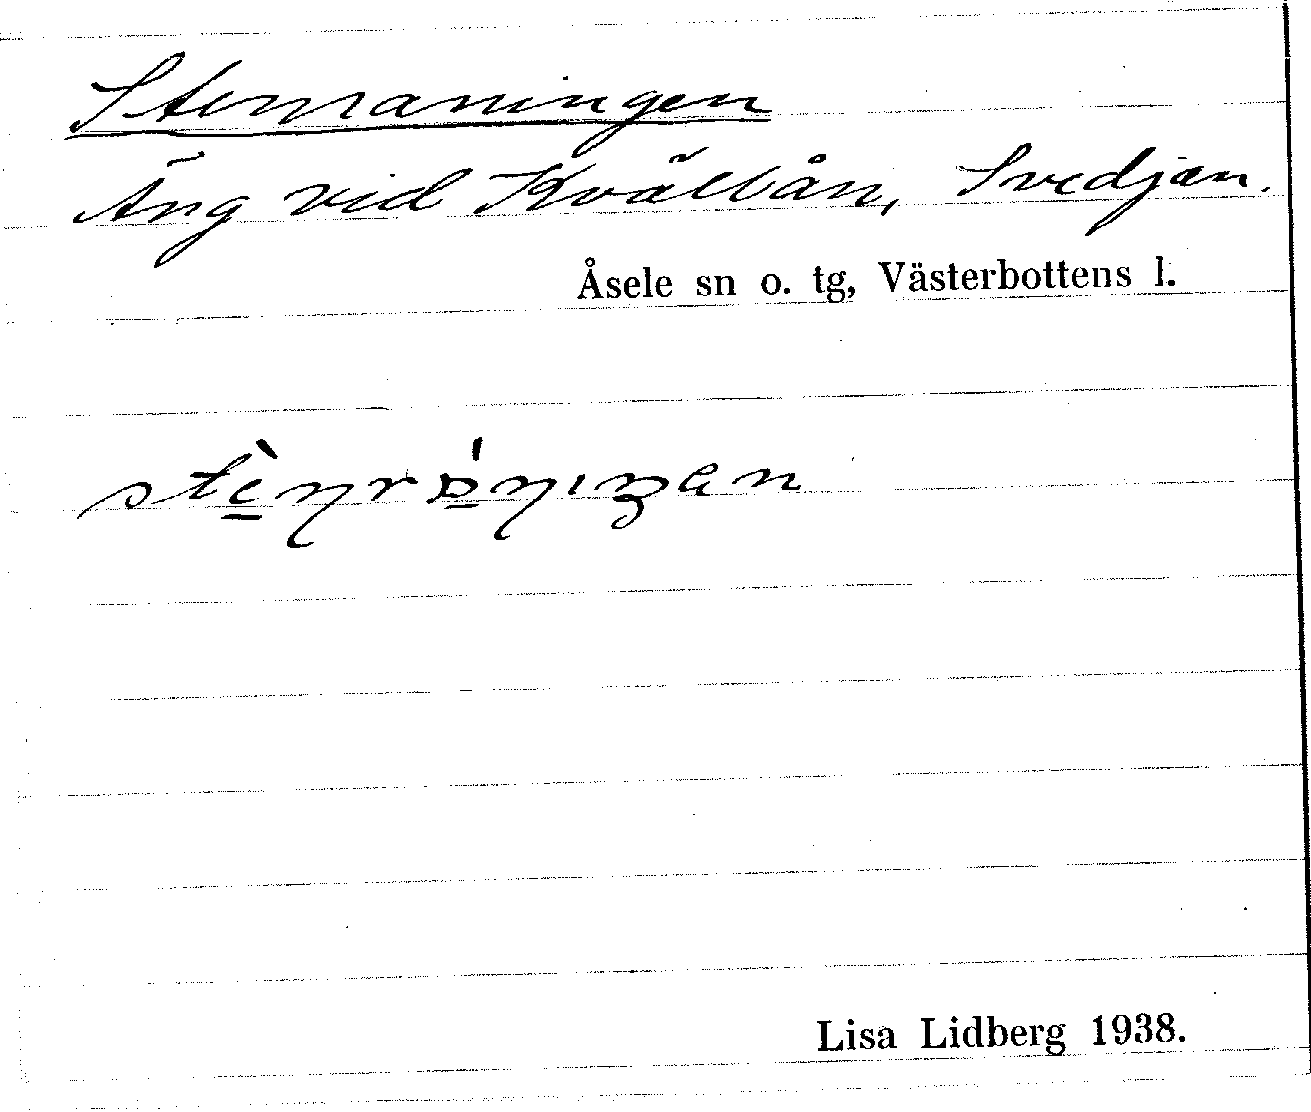 Stenraningen
Äng vid Kvällån, Svedjan.
Åsele sn o. tg, Västerbottens l.
Lisa Lidberg 1938.